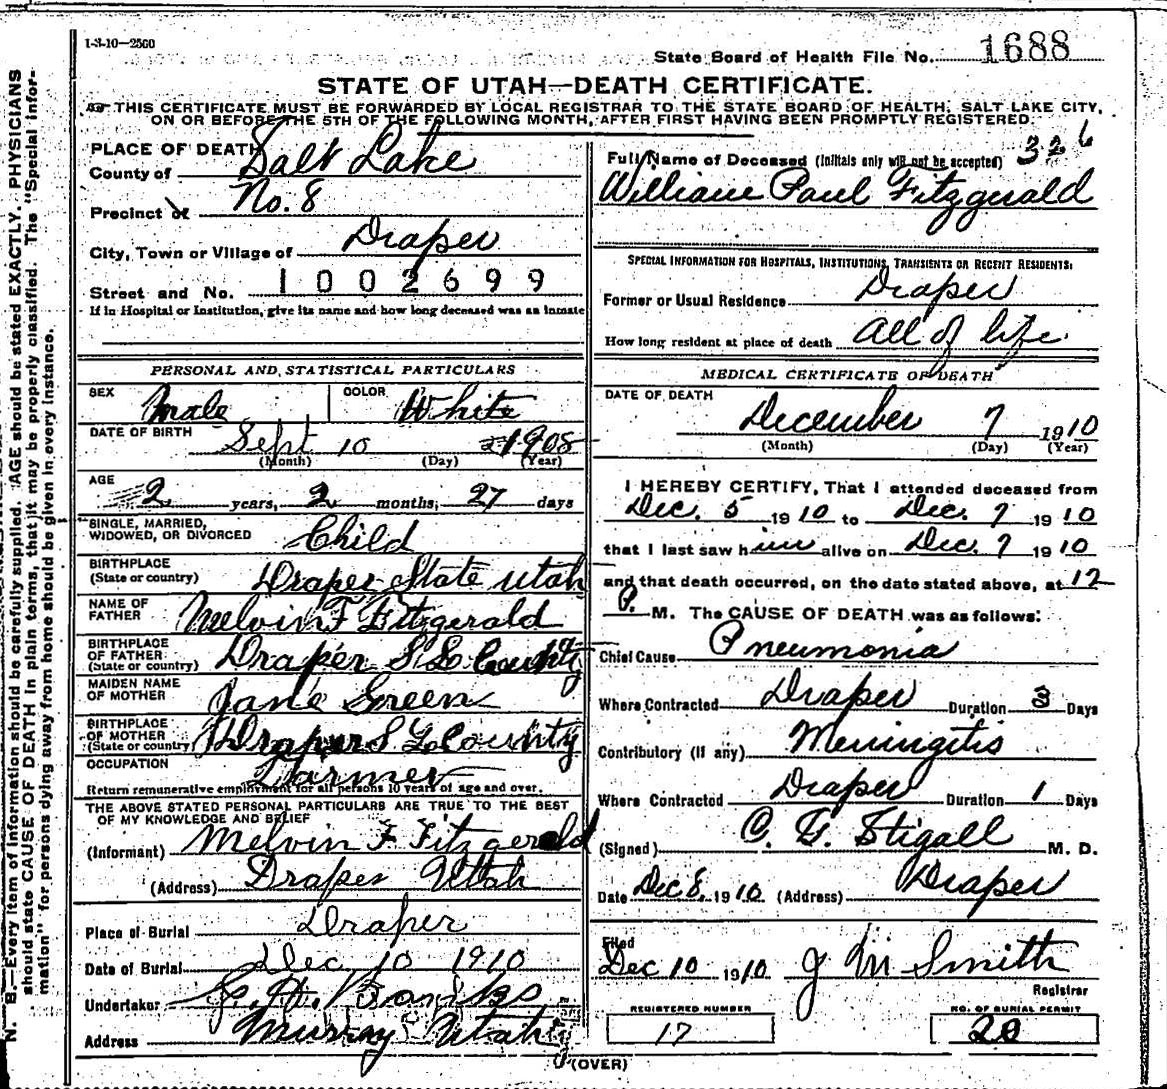 1-3-10—2500
State Board of Health File No. 1688
STATE OF UTAH—DEATH CERTIFICATE.
THIS CERTIFICATE MUST BE FORWARDED BY LOCAL REGISTRAR TO THE STATE BOARD OF HEALTH, SALT LAKE CITY,
ON OR BEFORE THE 5TH OF THE FOLLOWING MONTH, AFTER FIRST HAVING BEEN PROMPTLY REGISTERED.
PLACE OF DEATH
County of Salt Lake
Precinct of No. 8
City, Town or Village of Draper
Street and No. 1002699
If in Hospital or Institution, give its name and how long deceased was an inmate
PERSONAL AND STATISTICAL PARTICULARS
SEX Male COLOR White
DATE OF BIRTH Sept 10 1908
(Month) (Day) (Year)
AGE 2 years, 2 months, 27 days
SINGLE, MARRIED,
WIDOWED, OR DIVORCED Child
BIRTHPLACE
(State or country) Draper State Utah
NAME OF
FATHER Melvin F Fitzgerald
BIRTHPLACE
OF FATHER
(State or country) Draper S L County
MAIDEN NAME
OF MOTHER Jane Green
BIRTHPLACE
OF MOTHER
(State or country) Draper S L County
OCCUPATION Farmer
Return remunerative employment for all persons 10 years of age and over.
THE ABOVE STATED PERSONAL PARTICULARS ARE TRUE TO THE BEST
OF MY KNOWLEDGE AND BELIEF
(Informant) Melvin F Fitzgerald
(Address) Draper Utah
Place of Burial Draper
Date of Burial Dec 10 1910
Undertaker Banks
Address Murray Utah
(OVER)
326
Full Name of Deceased (Initials only will not be accepted)
William Paul Fitzgerald
SPECIAL INFORMATION FOR HOSPITALS, INSTITUTIONS, TRANSIENTS OR RECENT RESIDENTS:
Former or Usual Residence Draper
How long resident at place of death all of life
MEDICAL CERTIFICATE OF DEATH
DATE OF DEATH
December 7 1910
(Month) (Day) (Year)
I HEREBY CERTIFY, That I attended deceased from
Dec. 5 1910 to Dec. 7 1910
that I last saw him alive on Dec. 7 1910
and that death occurred, on the date stated above, at 12
P. M. The CAUSE OF DEATH was as follows:
Chief Cause Pneumonia
Where Contracted Draper Duration 3 Days
Contributory (If any) Meningitis
Where Contracted Draper Duration 1 Days
(Signed) C. G. Stigall M. D.
Date Dec 8, 1910 (Address) Draper
Filed
Dec 10 1910 J M Smith
Registrar
REGISTERED NUMBER
17
NO. OF BURIAL PERMIT
20
N. B.—Every item of information should be carefully supplied. AGE should be stated EXACTLY. PHYSICIANS
should state CAUSE OF DEATH in plain terms, that it may be properly classified. The "Special Infor-
mation" for persons dying away from home should be given in every instance.